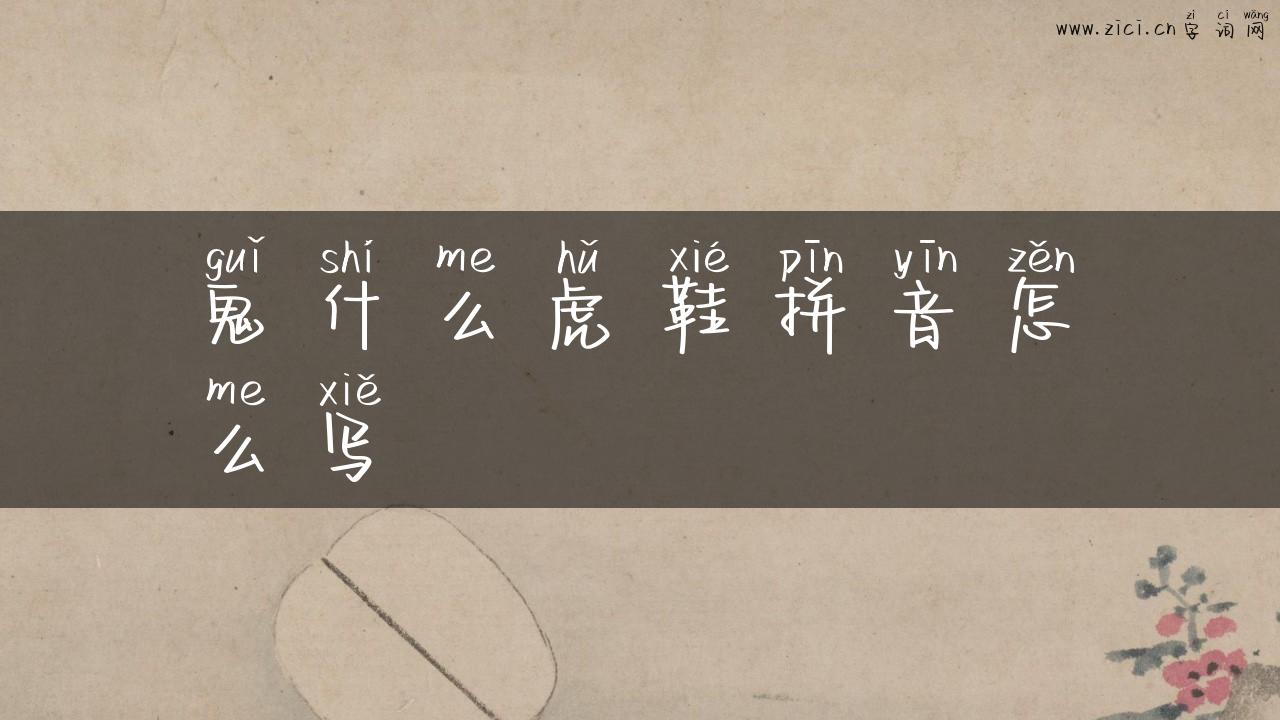 www.zici.cn
zì cí wǎng
字词网
guǐ shí me hǔ xié pīn yīn zěn
鬼什么虎鞋拼音怎
me xiě
么写